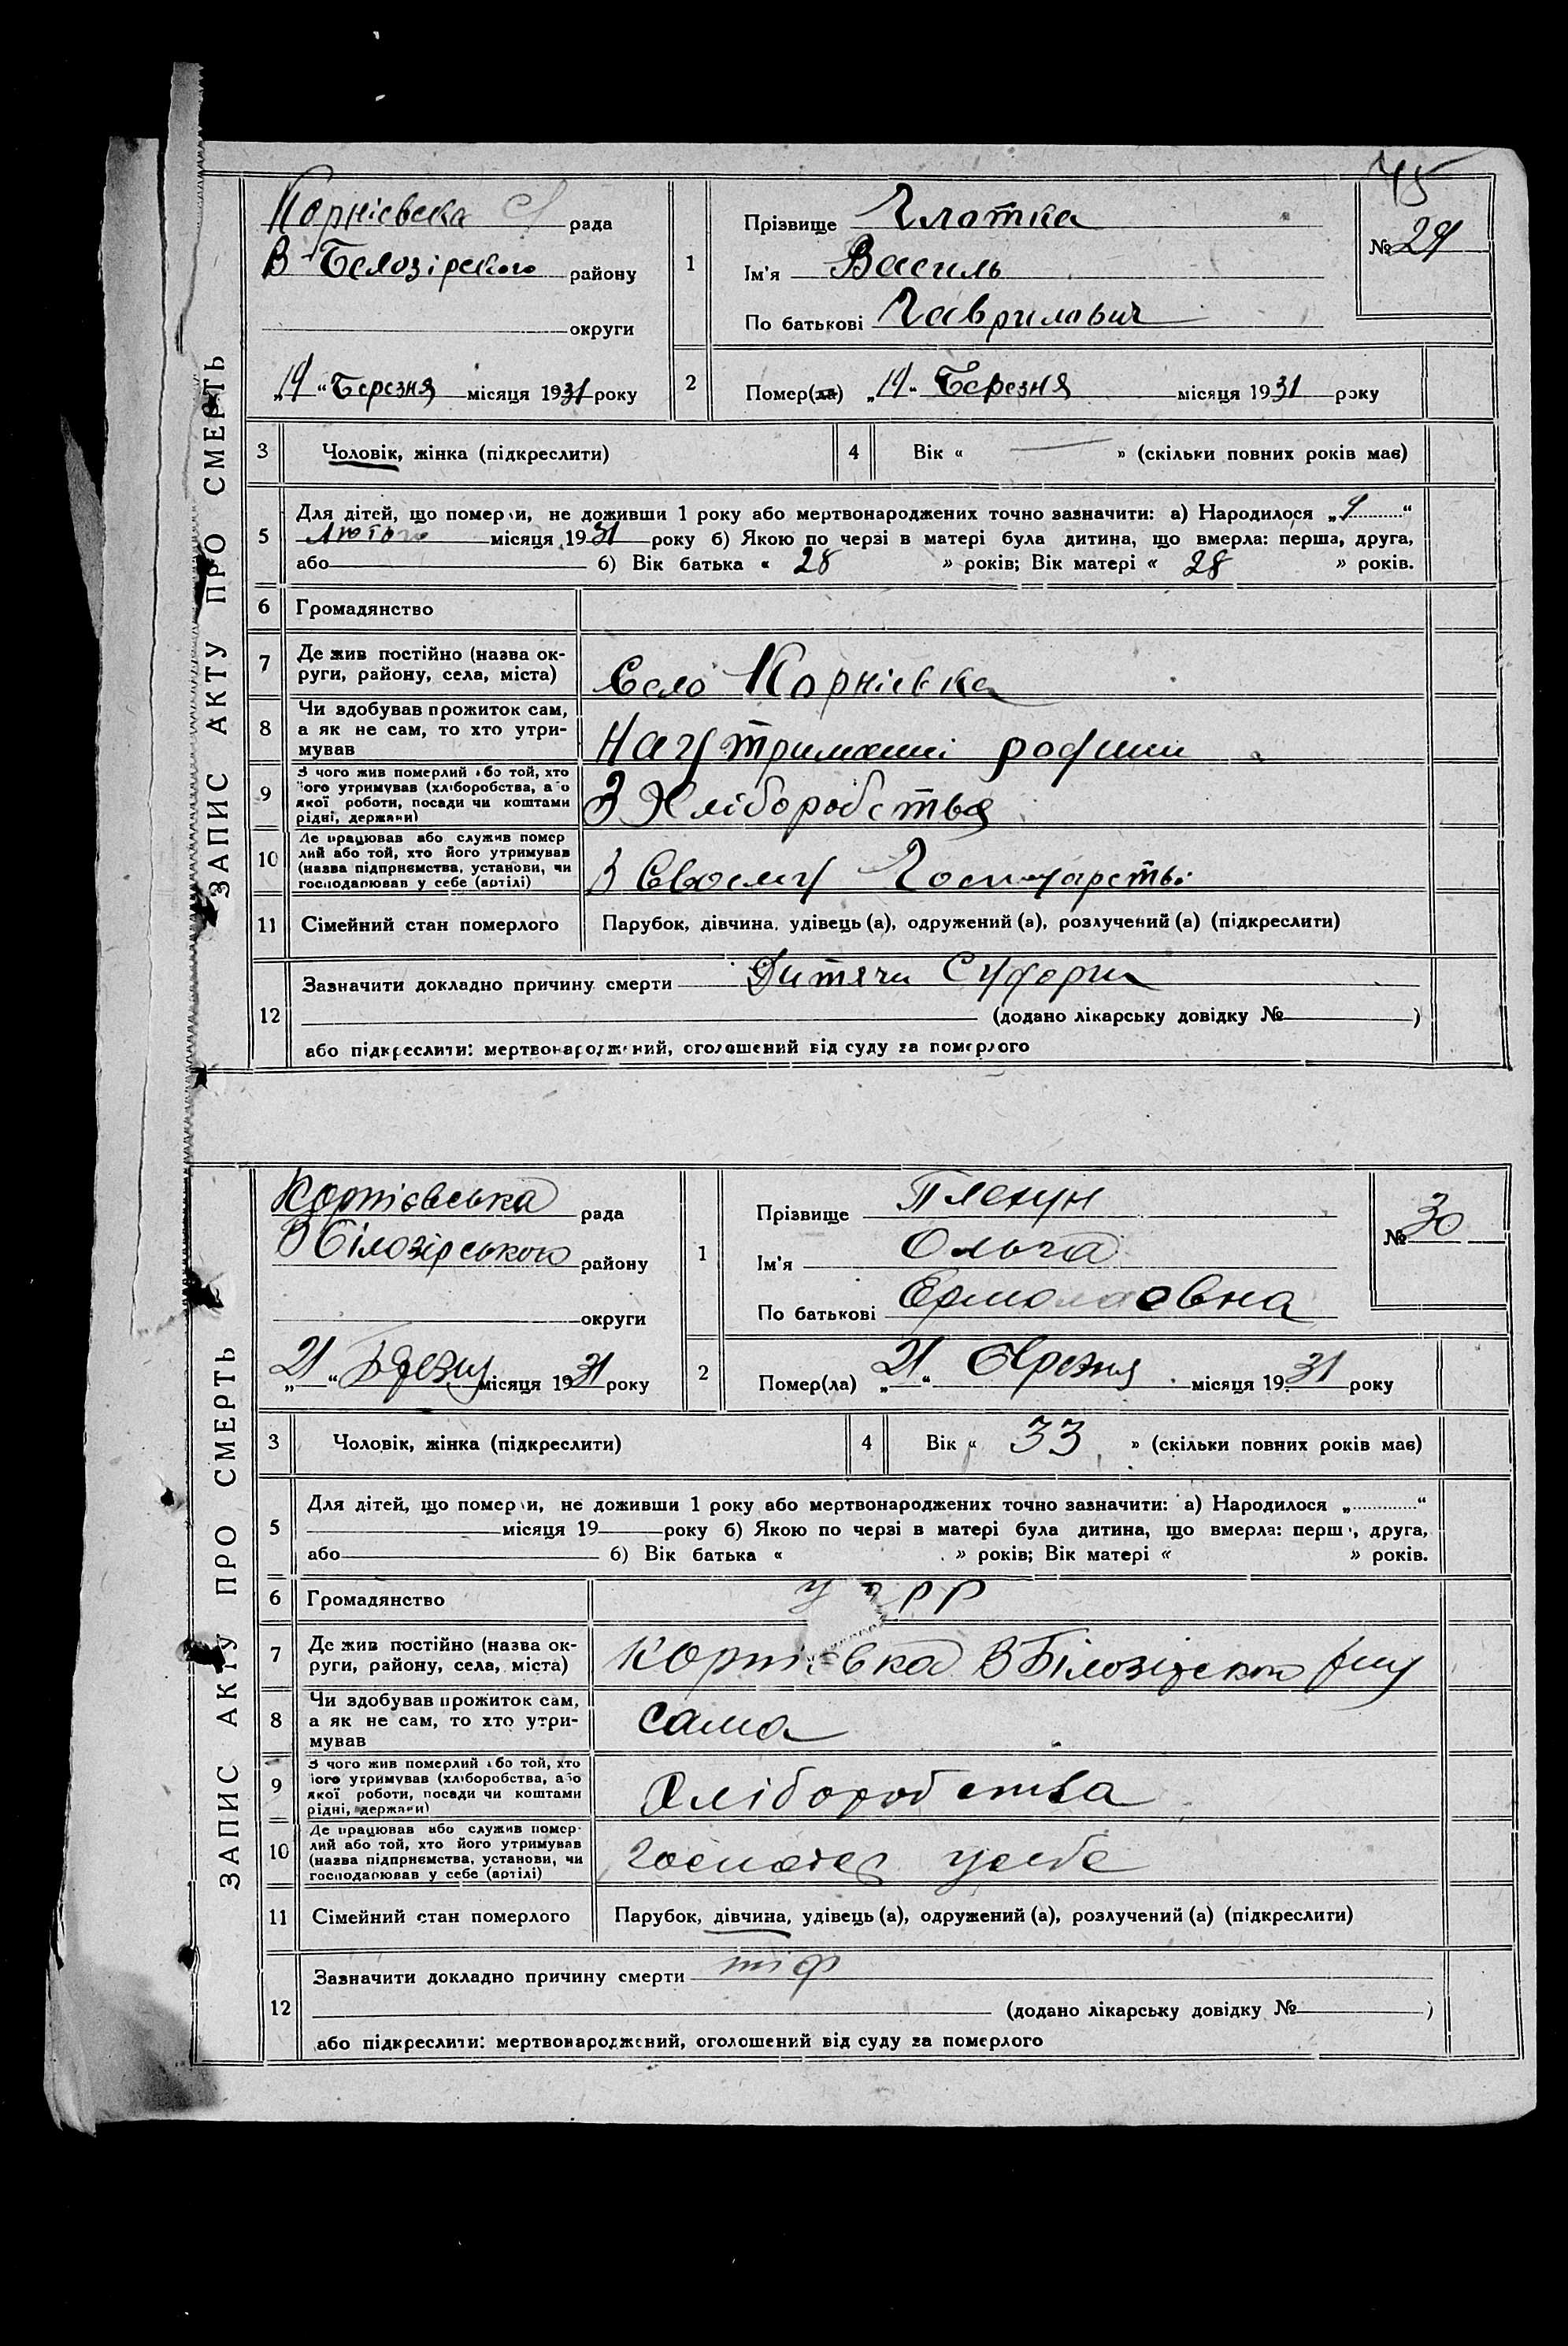 45
ЗАПИС АКТУ ПРО СМЕРТЬ
Корнієвска С/ рада
В-Белозірского району
округи
"19" Березня місяця 1931 року
1
Прізвище Глотка
Ім'я Василь
По батькові Гаврилович
№ 29
2 Помер(ла) "19" Березня місяця 1931 року
3 Чоловік, жінка (підкреслити)
4 Вік « — » (скільки повних років має)
5 Для дітей, що померли, не доживши 1 року або мертвонароджених точно зазначити: а) Народилося „9“
Лютого місяця 1931 року б) Якою по черзі в матері була дитина, що вмерла: перша, друга,
або б) Вік батька « 28 » років; Вік матері « 28 » років.
6 Громадянство
7 Де жив постійно (назва ок-
руги, району, села, міста) Село Корнієвка
8 Чи здобував прожиток сам,
а як не сам, то хто утри-
мував На утриманні родини
9 З чого жив померлий або той, хто
його утримував (хліборобства, або
якої роботи, посади чи коштами
рідні, держави) З Хліборобства
10 Де працював або служив помер
лий або той, хто його утримував
(назва підприємства, установи, чи
господарював у себе (артілі) В Своему Господарстві
11 Сімейний стан померлого Парубок, дівчина, удівець (а), одружений (а), розлучений (а) (підкреслити)
12 Зазначити докладно причину смерти Дитячи Судорги
(додано лікарську довідку № )
або підкреслити: мертвонароджений, оголошений від суду за померлого
ЗАПИС АКТУ ПРО СМЕРТЬ
Корнієвська рада
В Білозірського району
округи
„21“ Березня місяця 1931 року
1
Прізвище
Ім'я Ольга
По батькові Ермолаевна
№ 30
2 Помер(ла) „21“ місяця 1931 року
3 Чоловік, жінка (підкреслити)
4 Вік « 33 » (скільки повних років має)
5 Для дітей, що померли, не доживши 1 року або мертвонароджених точно зазначити: а) Народилося „ “
місяця 19 року б) Якою по черзі в матері була дитина, що вмерла: перш , друга,
або б) Вік батька « » років; Вік матері « » років.
6 Громадянство УСРР
7 Де жив постійно (назва ок-
руги, району, села, міста) Корнієвка В Білозірского
8 Чи здобував прожиток сам,
а як не сам, то хто утри-
мував сама
9 З чого жив померлий або той, хто
його утримував (хліборобства, або
якої роботи, посади чи коштами
рідні, держави) Хліборобства
10 Де працював або служив помер-
лий або той, хто його утримував
(назва підприємства, установи, чи
господарював у себе (артілі) у себе
11 Сімейний стан померлого Парубок, дівчина, удівець (а), одружений (а), розлучений (а) (підкреслити)
12 Зазначити докладно причину смерти тіф
(додано лікарську довідку № )
або підкреслити: мертвонароджений, оголошений від суду за померлого